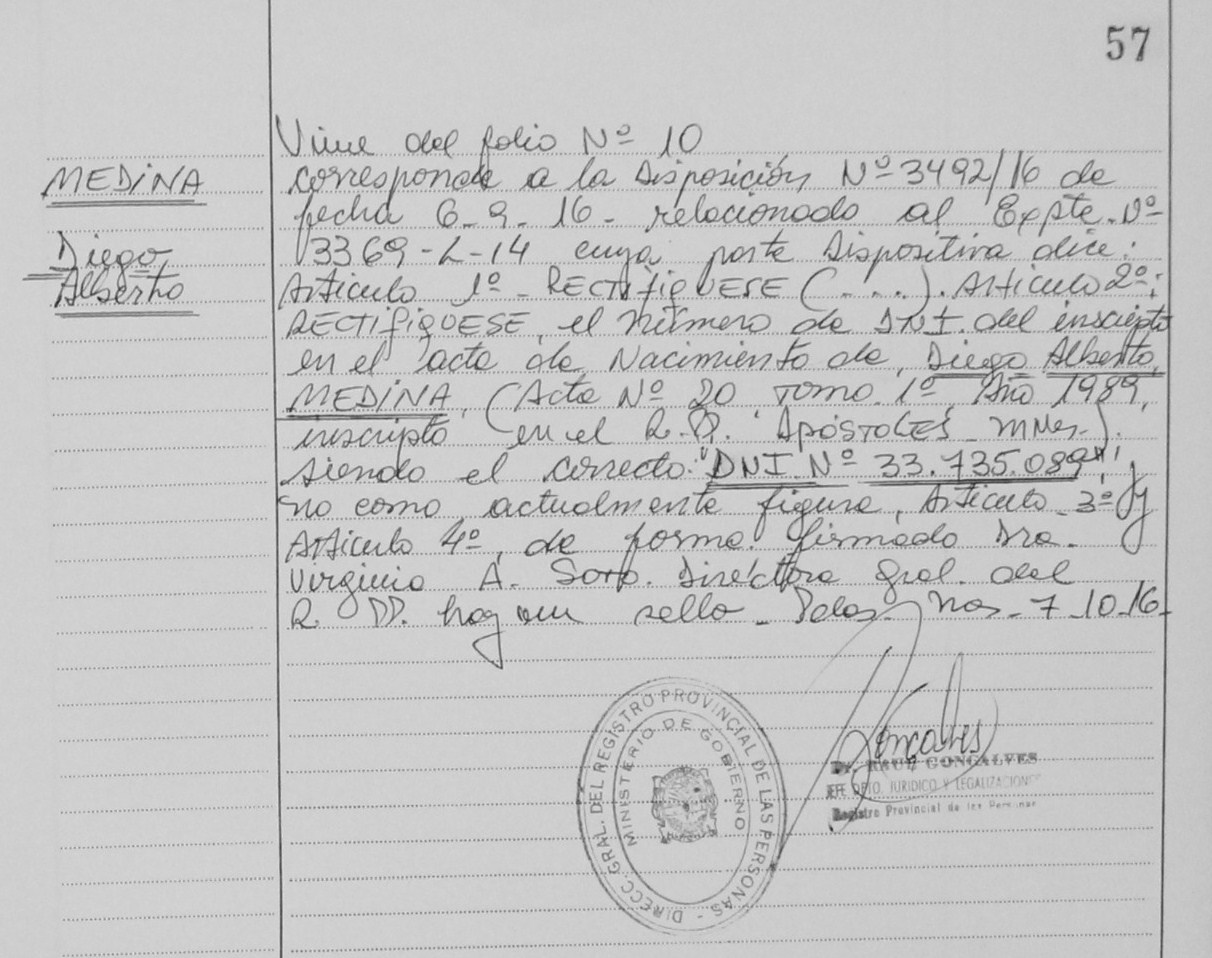 57
MEDINA
Diego
Alberto
Viene del folio Nº 10
corresponde a la Disposición Nº 3492/16 de
fecha 6-9-16- relacionado al Expte. Nº
3369-L-14 cuya parte Dispositiva dice:
Artículo 1º- RECTIFIQUESE (.....). Artículo 2º:
RECTIFIQUESE, el número de DNI. del inscripto
en el acta de Nacimiento de, Diego Alberto,
MEDINA, (Acta Nº 20 Tomo 1º, Año 1989,
inscripto en el R.P. APÓSTOLES - Mnes.).
siendo el correcto: "DNI. Nº 33.735.089",
no como actualmente figura, Artículo 3º y
Artículo 4º, de forma. firmado Dra.
Virginia A. Soto. Directora Gral. del
R. PP. hay un sello - Pdas. Mnes - 7-10-16-
DIRECC. GRAL. DEL REGISTRO PROVINCIAL DE LAS PERSONAS -
MINISTERIO DE GOBIERNO
Goncalves
Dr. RAUL GONCALVES
JEFE DPTO. JURIDICO Y LEGALIZACIONES
Registro Provincial de las Personas